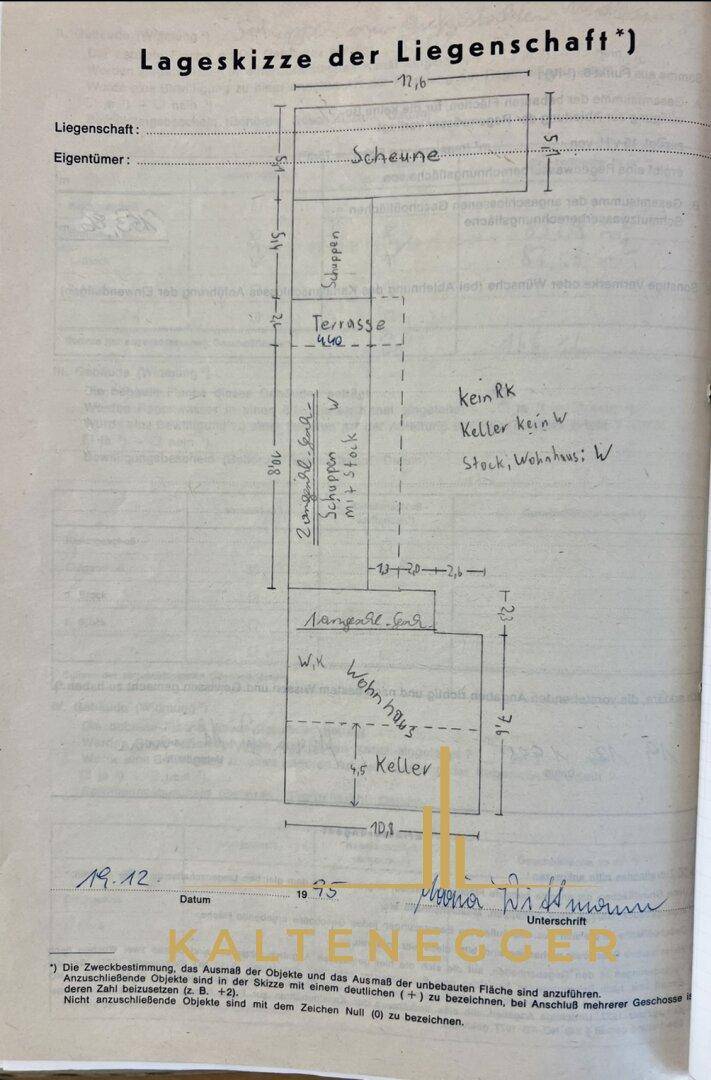 Lageskizze der Liegenschaft*)
12,6
Liegenschaft:
Eigentümer:
Scheune
5,1
5,1
5,4
Schuppen
2,1
Terrasse
4,40
kein RK
Keller kein W
Stock, Wohnhaus: W
10,8
2 angeschl. Gesch.
Schuppen W
mit Stock
1,3 2,0 2,6
2,3
1 angeschl. Gesch.
W, K
Wohnhaus
7,6
4,5
Keller
10,8
19.12. 1995
Maria Wittmann
Datum
Unterschrift
KALTENEGGER
*) Die Zweckbestimmung, das Ausmaß der Objekte und das Ausmaß der unbebauten Fläche sind anzuführen.
Anzuschließende Objekte sind in der Skizze mit einem deutlichen (+) zu bezeichnen, bei Anschluß mehrerer Geschosse is
deren Zahl beizusetzen (z. B. +2).
Nicht anzuschließende Objekte sind mit dem Zeichen Null (0) zu bezeichnen.